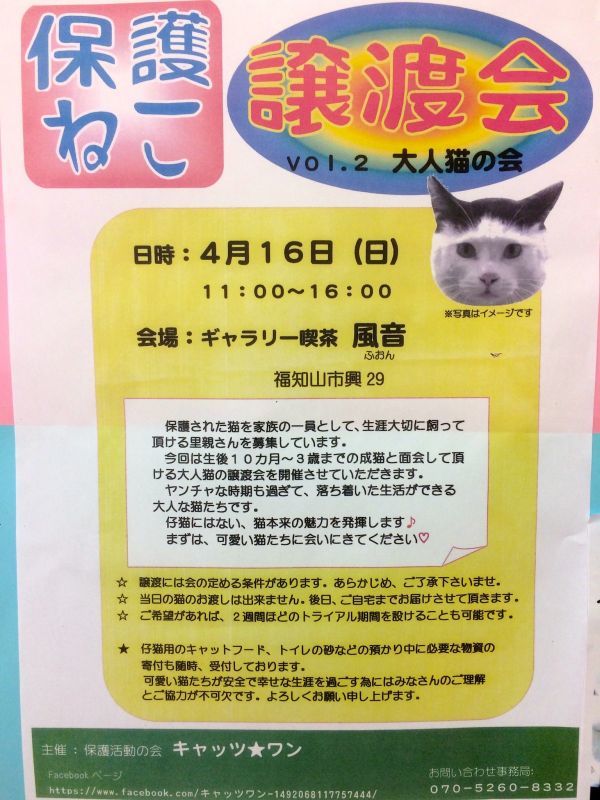 保護
ねこ
譲渡会
vol.2 大人猫の会
日時：4月16日（日）
11:00～16:00
※写真はイメージです
会場：ギャラリー喫茶 風音
ふおん
福知山市興29
保護された猫を家族の一員として、生涯大切に飼って
頂ける里親さんを募集しています。
今回は生後10カ月～3歳までの成猫と面会して頂
ける大人猫の譲渡会を開催させていただきます。
ヤンチャな時期も過ぎて、落ち着いた生活ができる
大人な猫たちです。
仔猫にはない、猫本来の魅力を発揮します♪
まずは、可愛い猫たちに会いにきてください♡
☆ 譲渡には会の定める条件があります。あらかじめ、ご了承下さいませ。
☆ 当日の猫のお渡しは出来ません。後日、ご自宅までお届けさせて頂きます。
☆ ご希望があれば、2週間ほどのトライアル期間を設けることも可能です。
★ 仔猫用のキャットフード、トイレの砂などの預かり中に必要な物資の
寄付も随時、受付しております。
可愛い猫たちが安全で幸せな生涯を過ごす為にはみなさんのご理解
とご協力が不可欠です。よろしくお願い申し上げます。
主催：保護活動の会 キャッツ★ワン
Facebookページ
https://www.facebook.com/キャッツワン-1492068117757444/
お問い合わせ事務局:
070-5260-8332